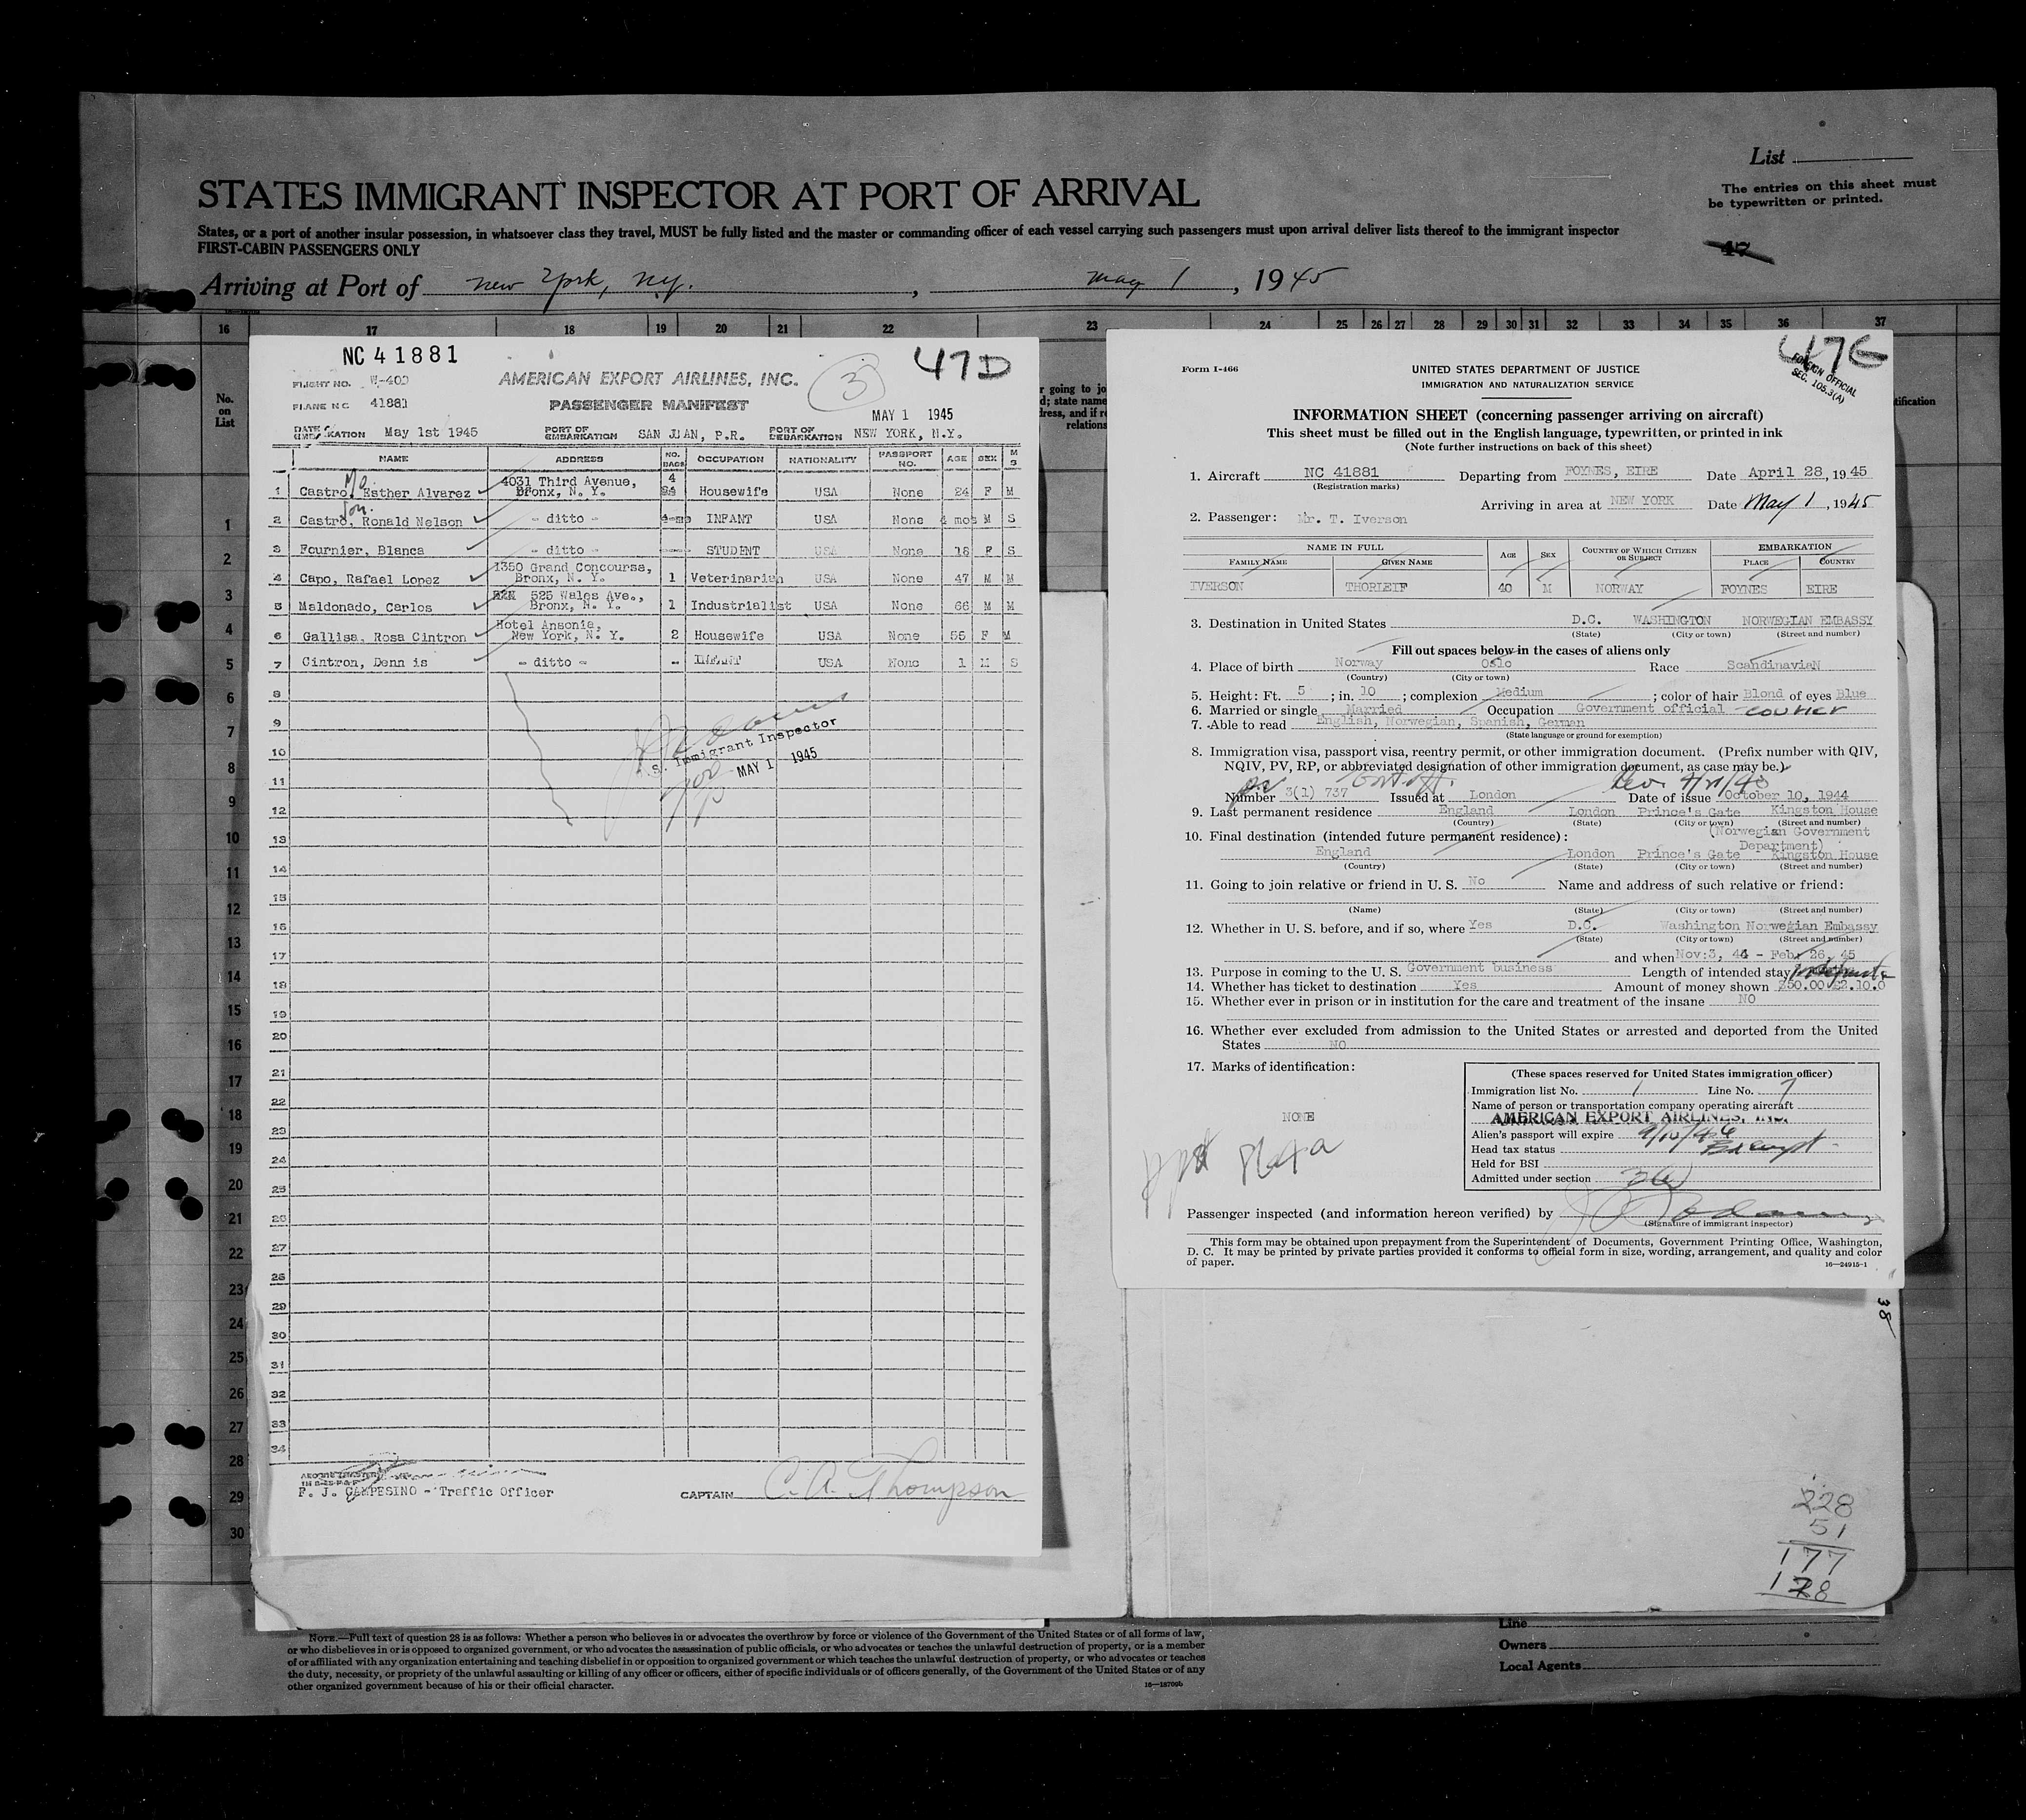 List
STATES IMMIGRANT INSPECTOR AT PORT OF ARRIVAL
The entries on this sheet must
be typewritten or printed.
States, or a port of another insular possession, in whatsoever class they travel, MUST be fully listed and the master or commanding officer of each vessel carrying such passengers must upon arrival deliver lists thereof to the immigrant inspector
FIRST-CABIN PASSENGERS ONLY
47
Arriving at Port of New York, NY. , May 1 , 1945
16 17 18 19 20 21 22 23 24 25 26 27 28 29 30 31 32 33 34 35 36 37
No.
on
List
1
2
3
4
5
6
7
8
9
10
11
12
13
14
15
16
17
18
19
20
21
22
23
24
25
26
27
28
29
30
NC 41881
47D
3
FLIGHT NO. W-400 AMERICAN EXPORT AIRLINES, INC.
PLANE NO 41881 PASSENGER MANIFEST
MAY 1 1945
May 1st 1945 PORT OF EMBARKATION SAN JUAN, P.R. PORT OF DEBARKATION NEW YORK, N.Y.
NAME ADDRESS NO. BAGS OCCUPATION NATIONALITY PASSPORT NO. AGE SEX M S
Mo.
4031 Third Avenue, 4
1 Castro, Esther Alvarez Bronx, N. Y. Housewife USA None 24 F M
Son.
2 Castro, Ronald Nelson - ditto - INFANT USA None 4 mos M S
3 Fournier, Blanca - ditto - STUDENT USA None 18 F S
1350 Grand Concourse,
4 Capo, Rafael Lopez Bronx, N. Y. 1 Veterinarian USA None 47 M M
525 Wales Ave.,
5 Maldonado, Carlos Bronx, N. Y. 1 Industrialist USA None 66 M M
Hotel Ansonia,
6 Gallisa, Rosa Cintron New York, N. Y. 2 Housewife USA None 55 F M
7 Cintron, Dennis - ditto - - INFANT USA None 1 M S
8
9
10
11
12
13
14
15
16
17
18
19
20
21
22
23
24
25
26
27
28
29
30
31
32
33
34
S. Immigrant Inspector
MAY 1 1945
F. J. CAMPESINO - Traffic Officer
CAPTAIN C. A. Thompson
47E
FOREIGN OFFICIAL
SEC. 105.3(A)
Form I-466
UNITED STATES DEPARTMENT OF JUSTICE
IMMIGRATION AND NATURALIZATION SERVICE
INFORMATION SHEET (concerning passenger arriving on aircraft)
This sheet must be filled out in the English language, typewritten, or printed in ink
(Note further instructions on back of this sheet)
1. Aircraft NC 41881 Departing from FOYNES, EIRE Date April 28, 1945
(Registration marks)
Arriving in area at NEW YORK Date May 1, 1945
2. Passenger: Mr. T. Iverson
NAME IN FULL AGE SEX COUNTRY OF WHICH CITIZEN OR SUBJECT EMBARKATION
FAMILY NAME GIVEN NAME PLACE COUNTRY
IVERSON THORLEIF 40 M NORWAY FOYNES EIRE
3. Destination in United States D.C. WASHINGTON NORWEGIAN EMBASSY
(State) (City or town) (Street and number)
Fill out spaces below in the cases of aliens only
4. Place of birth Norway Oslo Race Scandinavian
(Country) (City or town)
5. Height: Ft. 5 ; in. 10 ; complexion Medium ; color of hair Blond of eyes Blue
6. Married or single Married Occupation Government official - courier
7. Able to read English, Norwegian, Spanish, German
(State language or ground for exemption)
8. Immigration visa, passport visa, reentry permit, or other immigration document. (Prefix number with QIV,
NQIV, PV, RP, or abbreviated designation of other immigration document, as case may be.)
Number 3(1) 737 Issued at London Date of issue October 10, 1944
9. Last permanent residence England London Prince's Gate Kingston House
(Country) (State) (City or town) (Street and number)
(Norwegian Government
Department)
10. Final destination (intended future permanent residence):
England London Prince's Gate Kingston House
(Country) (State) (City or town) (Street and number)
11. Going to join relative or friend in U. S. No Name and address of such relative or friend:
(Name) (State) (City or town) (Street and number)
12. Whether in U. S. before, and if so, where Yes D.C. Washington Norwegian Embassy
(State) (City or town) (Street and number)
and when Nov:3, 44 - Feb. 26, 45
13. Purpose in coming to the U. S. Government business Length of intended stay
14. Whether has ticket to destination Yes Amount of money shown $50.00 £2.10.0
15. Whether ever in prison or in institution for the care and treatment of the insane NO
16. Whether ever excluded from admission to the United States or arrested and deported from the United
States NO
17. Marks of identification:
NONE
(These spaces reserved for United States immigration officer)
Immigration list No. 1 Line No. 7
Name of person or transportation company operating aircraft
AMERICAN EXPORT AIRLINES, INC.
Alien's passport will expire 9/10/46
Head tax status Exempt
Held for BSI
Admitted under section
Passenger inspected (and information hereon verified) by
(Signature of immigrant inspector)
This form may be obtained upon prepayment from the Superintendent of Documents, Government Printing Office, Washington,
D. C. It may be printed by private parties provided it conforms to official form in size, wording, arrangement, and quality and color
of paper.
16—24915-1
38
228
51
177
178
NOTE.—Full text of question 28 is as follows: Whether a person who believes in or advocates the overthrow by force or violence of the Government of the United States or of all forms of law,
or who disbelieves in or is opposed to organized government, or who advocates the assassination of public officials, or who advocates or teaches the unlawful destruction of property, or is a member
of or affiliated with any organization entertaining and teaching disbelief in or opposition to organized government or which teaches the unlawful destruction of property, or who advocates or teaches
the duty, necessity, or propriety of the unlawful assaulting or killing of any officer or officers, either of specific individuals or of officers generally, of the Government of the United States or of any
other organized government because of his or their official character.
16—18709b
Line
Owners
Local Agents